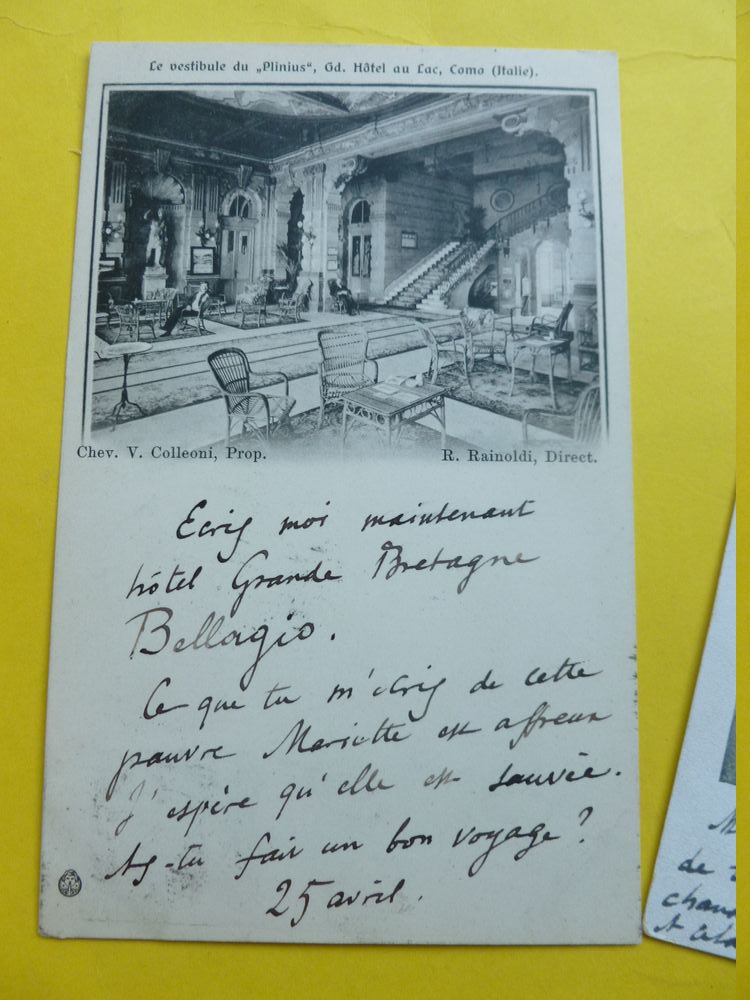 Le vestibule du „Plinius“, Gd. Hôtel au Lac, Como (Italie).
Chev. V. Colleoni, Prop.
R. Rainoldi, Direct.
Ecris moi maintenant
hôtel Grande Bretagne
Bellagio.
Ce que tu m'écris de cette
pauvre Mariette est affreux
J'espère qu'elle est sauvée.
As-tu fait un bon voyage ?
25 avril.
de